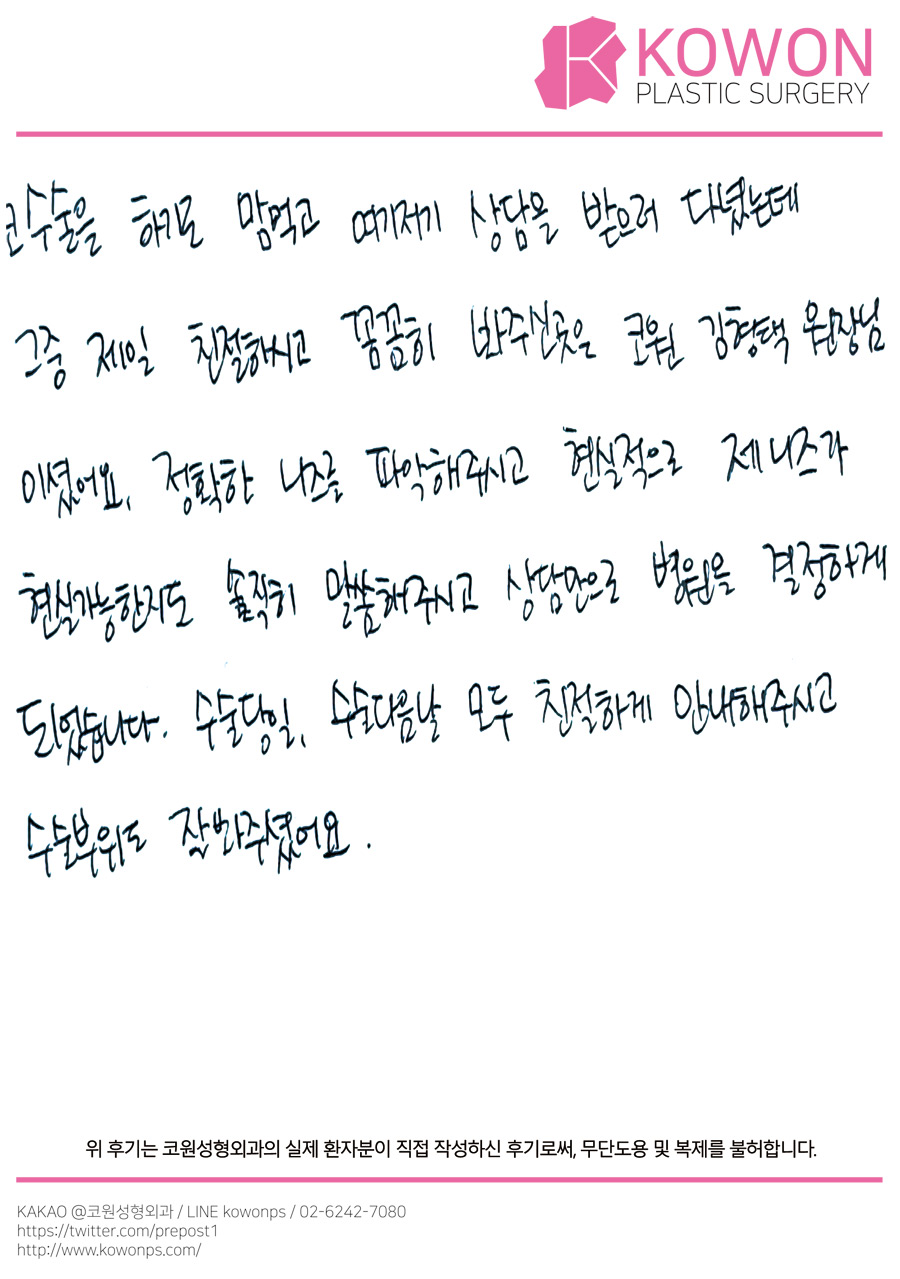 KOWON
PLASTIC SURGERY
코수술을 하기로 맘먹고 여기저기 상담을 받으러 다녔는데
그중 제일 친절하시고 꼼꼼히 봐주신곳은 코원 김형택 원장님
이셨어요. 정확한 니즈를 파악해주시고 현실적으로 제 니즈가
현실가능한지도 솔직히 말씀해주시고 상담만으로 병원을 결정하게
되었습니다. 수술당일, 수술다음날 모두 친절하게 안내해주시고
수술부위도 잘봐주셨어요.
위 후기는 코원성형외과의 실제 환자분이 직접 작성하신 후기로써, 무단도용 및 복제를 불허합니다.
KAKAO @코원성형외과 / LINE kowonps / 02-6242-7080
https://twitter.com/prepost1
http://www.kowonps.com/